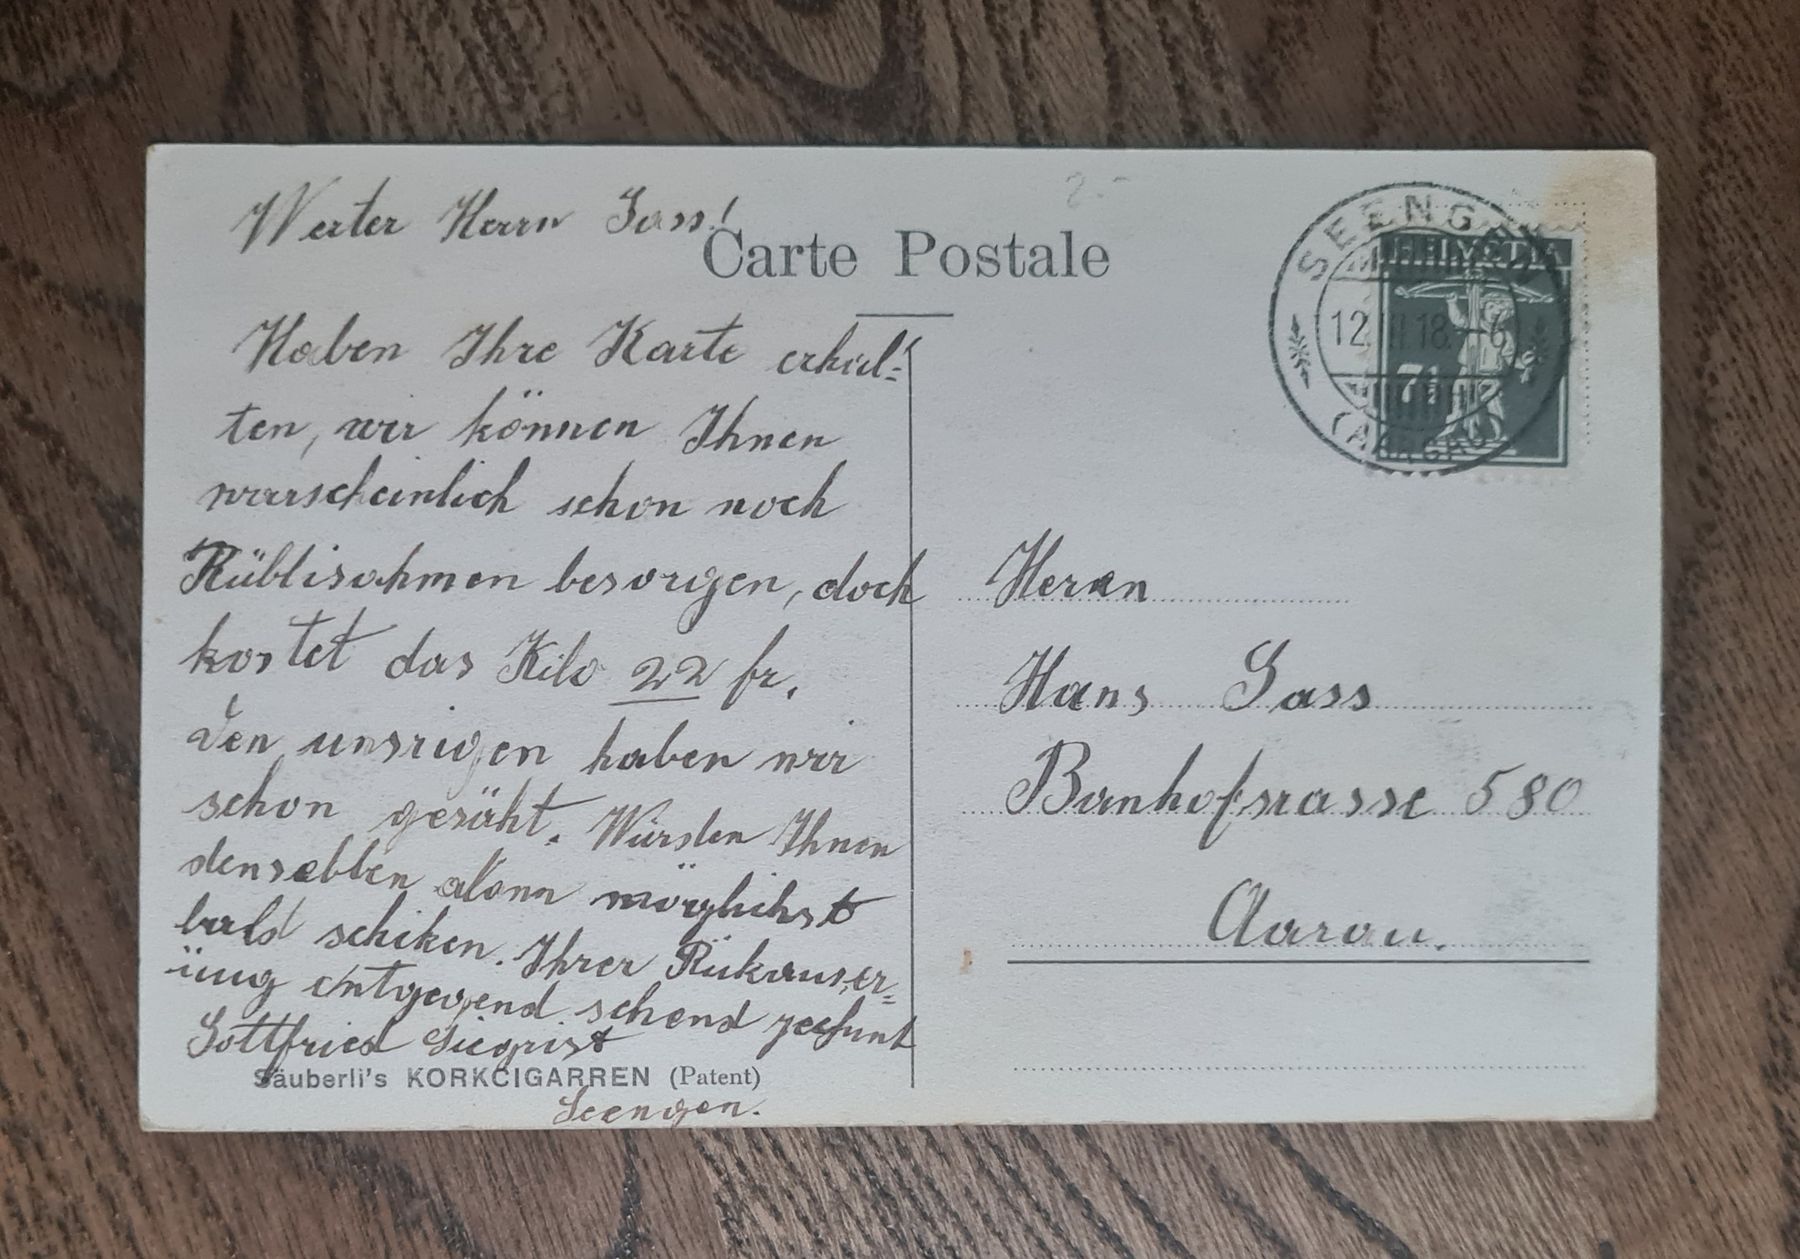 Werter Herrn Gass!
Carte Postale
2.-
Haben Ihre Karte erhal-
ten, wir können Ihnen
warscheinlich schon noch
Rüblisahmen besorgen, doch
kostet das Kilo 22 fr.
Den unsrigen haben wir
schon gesäht. Würden Ihnen
denselben dann möglichst
bald schiken. Ihrer Rükauser-
üng entgegend sehend
Gottfried Siegrist
Säuberli's KORKCIGARREN (Patent)
Seengen.
SEENGEN
HELVETIA
12. III 18. - 6
7½
(AARGAU)
Herrn
Hans Gass
Banhofsrasse 580
Aarau.